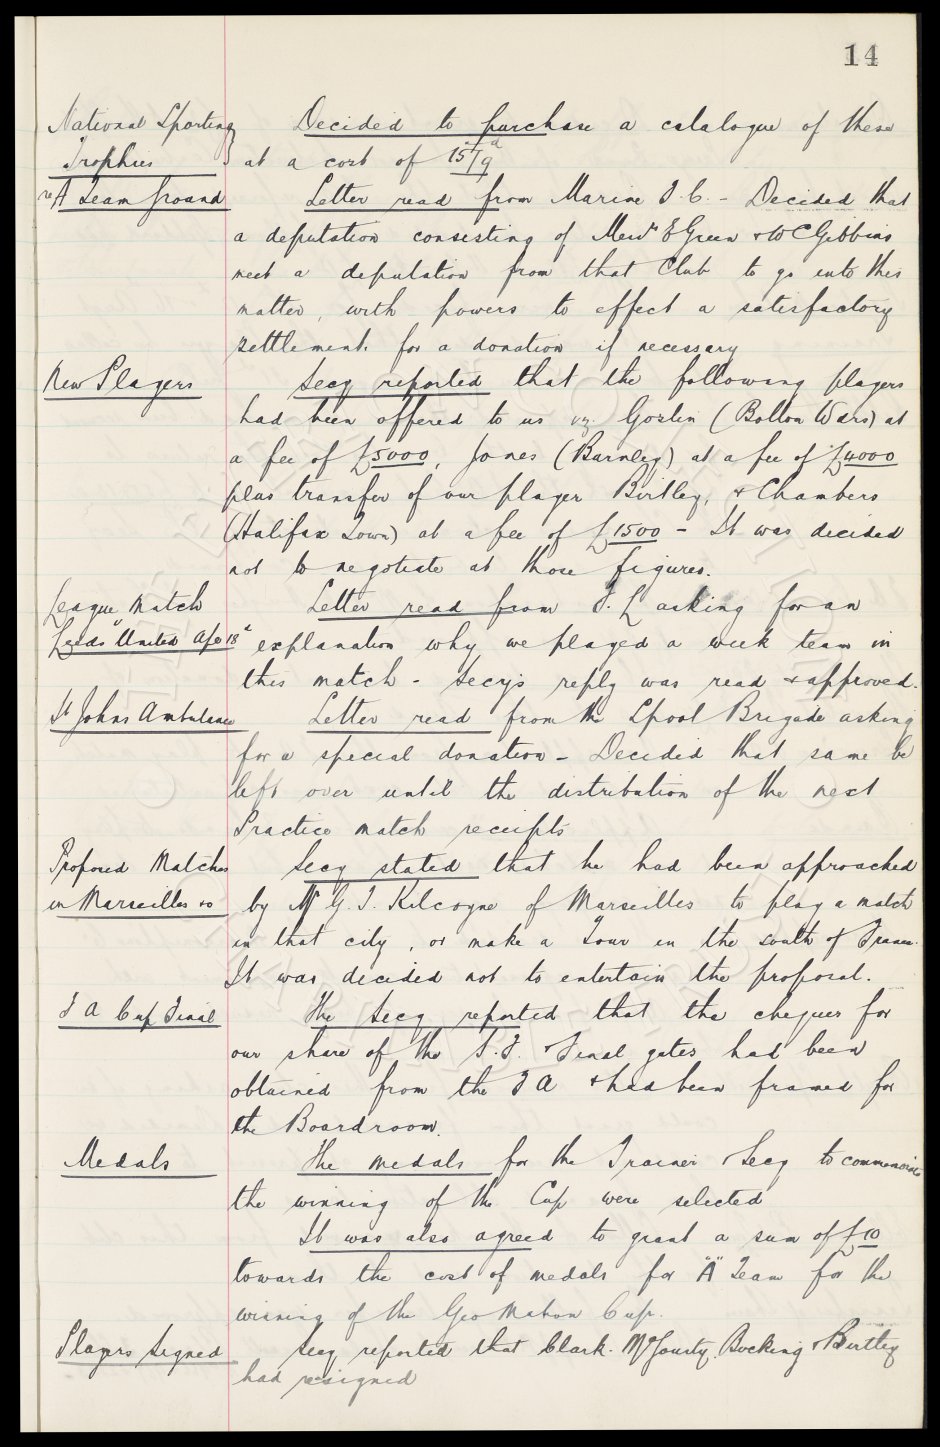 14
National Sporting Decided to purchase a catalogue of these
Trophies at a cost of 15/9d
re A Team ground Letter read from Marine F.C. - Decided that
a deputation consisting of Messrs E Green & W C Gibbins
meet a deputation from that Club to go into this
matter, with powers to effect a satisfactory
settlement. for a donation if necessary
New Players Secy reported that the following players
had been offered to us viz. Goslin (Bolton Wdrs) at
a fee of £5000, Jones (Barnley) at a fee of £4000
plus transfer of our player Birtley, & Chambers
(Halifax Town) at a fee of £1500 - It was decided
not to negotiate at those figures.
League Match Letter read from F.L asking for an
Leeds United Apl 18th explanation why we played a week team in
this match - Secy's reply was read & approved.
St Johns Ambulance Letter read from the Lpool Brigade asking
for a special donation - Decided that same be
left over until the distribution of the next
Practice match receipts
Proposed Matches Secy stated that he had been approached
in Marseilles &c by Mr G. J. Kilcoyne of Marseilles to play a match
in that city, or make a Tour in the south of France.
It was decided not to entertain the proposal.
F A Cup Final The Secy reported that the cheques for
our share of the S.F. & Final gates had been
obtained from the F A & had been framed for
the Boardroom.
Medals The medals for the Trainer & Secy to commemorate
the winning of the Cup were selected
It was also agreed to grant a sum of £10
towards the cost of medals for "A" Team for the
winning of the Geo Mahon Cup.
Players Signed Secy reported that Clark. McGourty, Bocking & Birtley
had resigned